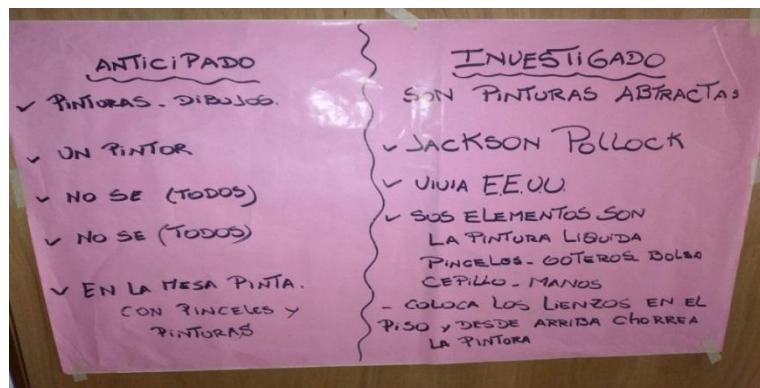 ANTICIPADO
✓ PINTURAS - DIBUJOS.
✓ UN PINTOR
✓ NO SE (TODOS)
✓ NO SE (TODOS)
✓ EN LA MESA PINTA.
CON PINCELES Y
PINTURAS
INVESTIGADO
SON PINTURAS ABTRACTAS
✓ JACKSON POLLOCK
✓ VIVIA E.E.U.U.
✓ SUS ELEMENTOS SON
LA PINTURA LIQUIDA
PINCELOS - GOTEROS BOLSA
CEPILLO - MANOS
- COLOCA LOS LIENZOS EN EL
PISO Y DESDE ARRIBA CHORREA
LA PINTURA